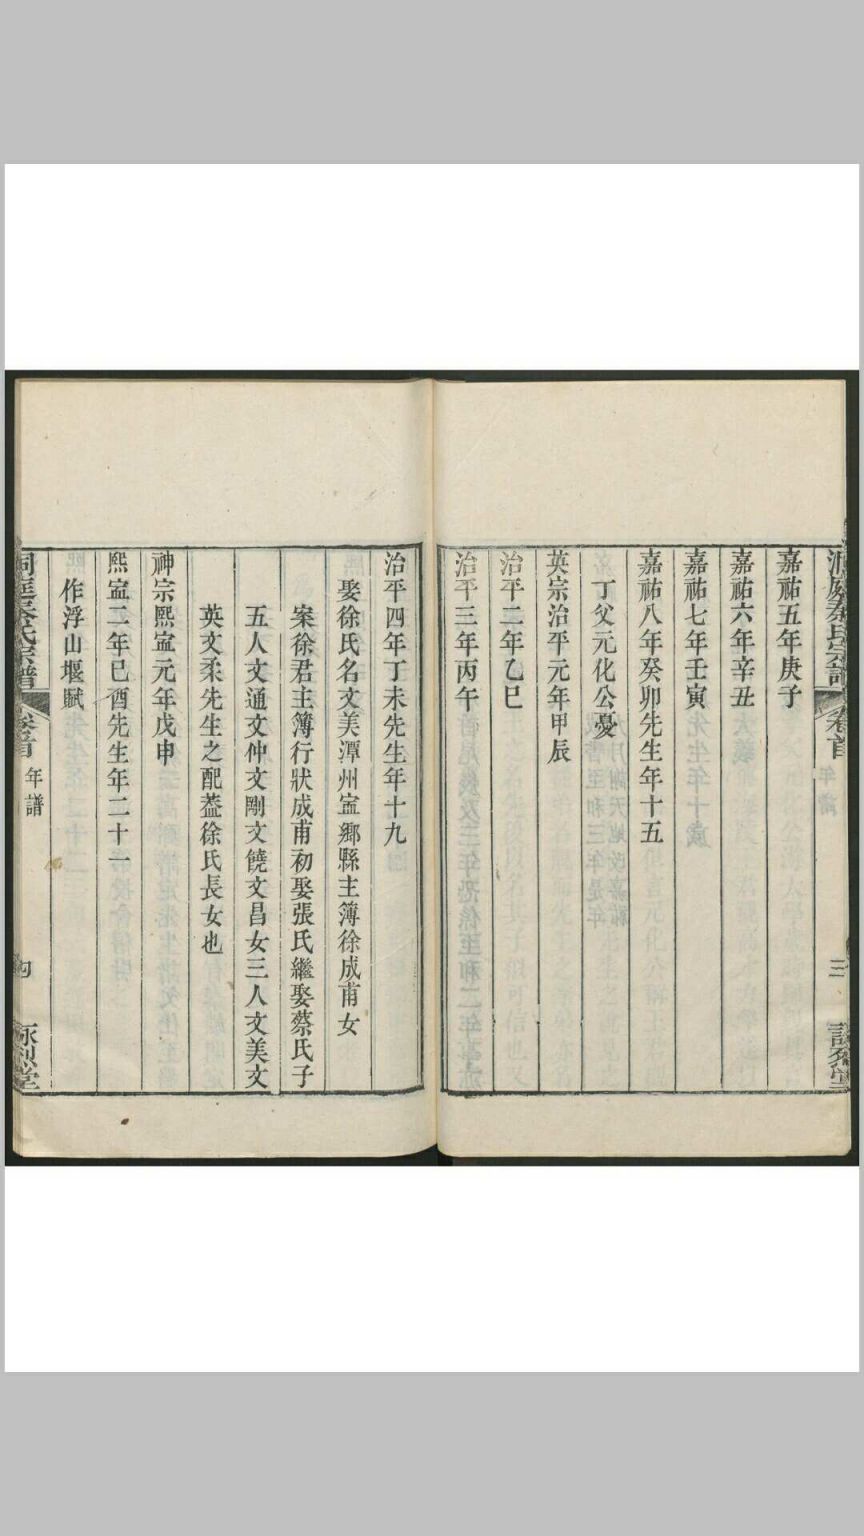 洞庭秦氏宗譜
卷首
年譜
三
詠烈堂
嘉祐五年庚子
嘉祐六年辛丑
嘉祐七年壬寅
嘉祐八年癸卯先生年十五
丁父元化公憂
英宗治平元年甲辰
治平二年乙巳
治平三年丙午
治平四年丁未先生年十九
娶徐氏名文美潭州寍鄉縣主簿徐成甫女
案徐君主簿行狀成甫初娶張氏繼娶蔡氏子
五人文通文仲文剛文饒文昌女三人文美文
英文柔先生之配葢徐氏長女也
神宗熙寍元年戊申
熙寍二年已酉先生年二十一
作浮山堰賦
洞庭秦氏宗譜
卷首
年譜
四
詠烈堂